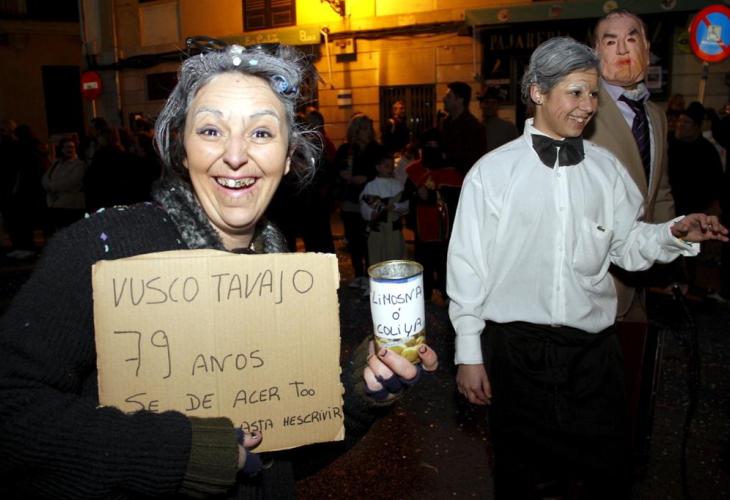 VUSCO TAVAJO
79 ANOS
SE DE ACER TOO
ASTA HESCRIVIR
LIMOSNA
Ó
COLIYA
PAJARE